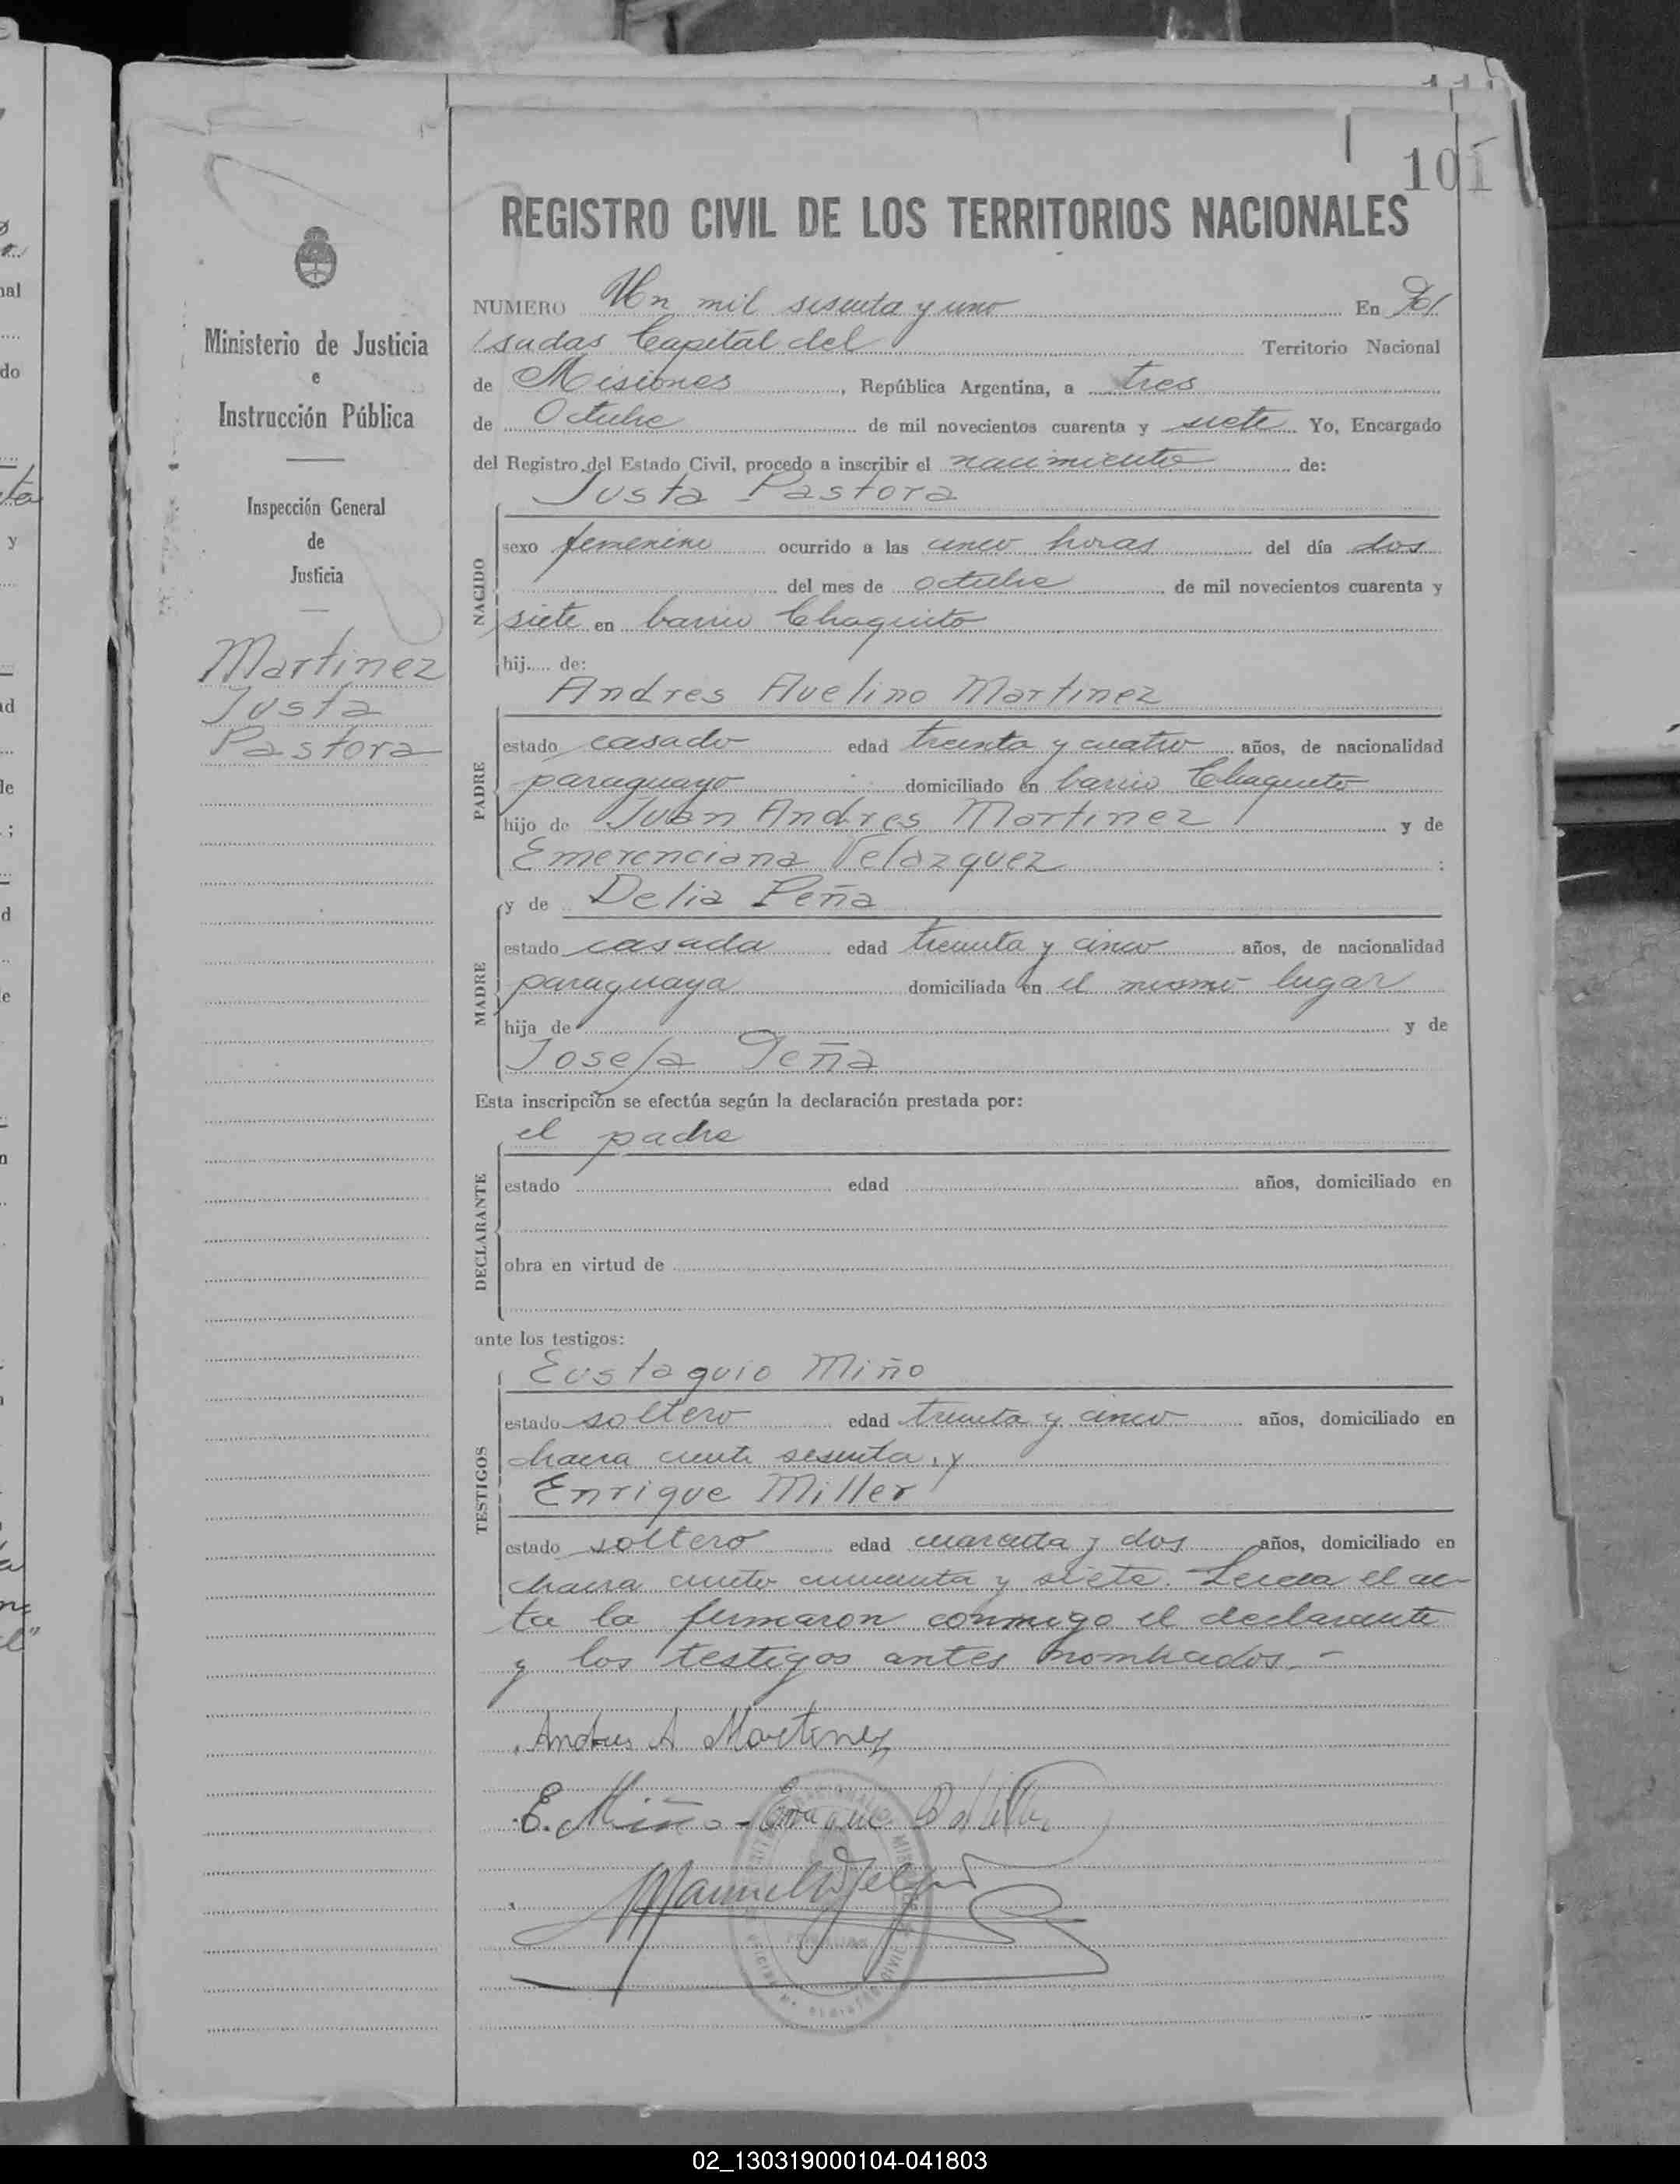 101
REGISTRO CIVIL DE LOS TERRITORIOS NACIONALES
Ministerio de Justicia
e
Instrucción Pública
Inspección General
de
Justicia
Martinez
Justa
Pastora
NUMERO Un mil sesenta y uno En Po/
sadas Capital del Territorio Nacional
de Misiones, República Argentina, a tres
de Octubre de mil novecientos cuarenta y siete Yo, Encargado
del Registro del Estado Civil, procedo a inscribir el nacimiento de:
Justa Pastora
NACIDO
sexo femenino ocurrido a las cinco horas del día dos
del mes de octubre de mil novecientos cuarenta y
siete en barrio Chaquito
hij..... de:
Andres Avelino Martinez
PADRE
estado casado edad treinta y cuatro años, de nacionalidad
paraguayo domiciliado en barrio Chaquito
hijo de Juan Andres Martinez y de
Emerenciana Velazquez :
y de Delia Peña
MADRE
estado casada edad treinta y cinco años, de nacionalidad
paraguaya domiciliada en el mismo lugar
hija de y de
Josefa Peña
Esta inscripción se efectúa según la declaración prestada por:
el padre
DECLARANTE
estado edad años, domiciliado en
obra en virtud de
ante los testigos:
Eustaquio Miño
TESTIGOS
estado soltero edad treinta y cinco años, domiciliado en
chacra ciento sesenta, y
Enrique Miller
estado soltero edad cuarenta y dos años, domiciliado en
chacra ciento cincuenta y siete. Leida el ac-
ta la firmaron conmigo el declarante
y los testigos antes nombrados.-
Andres A Martinez
E. Miño - Enrique
Manuel
02_130319000104-041803